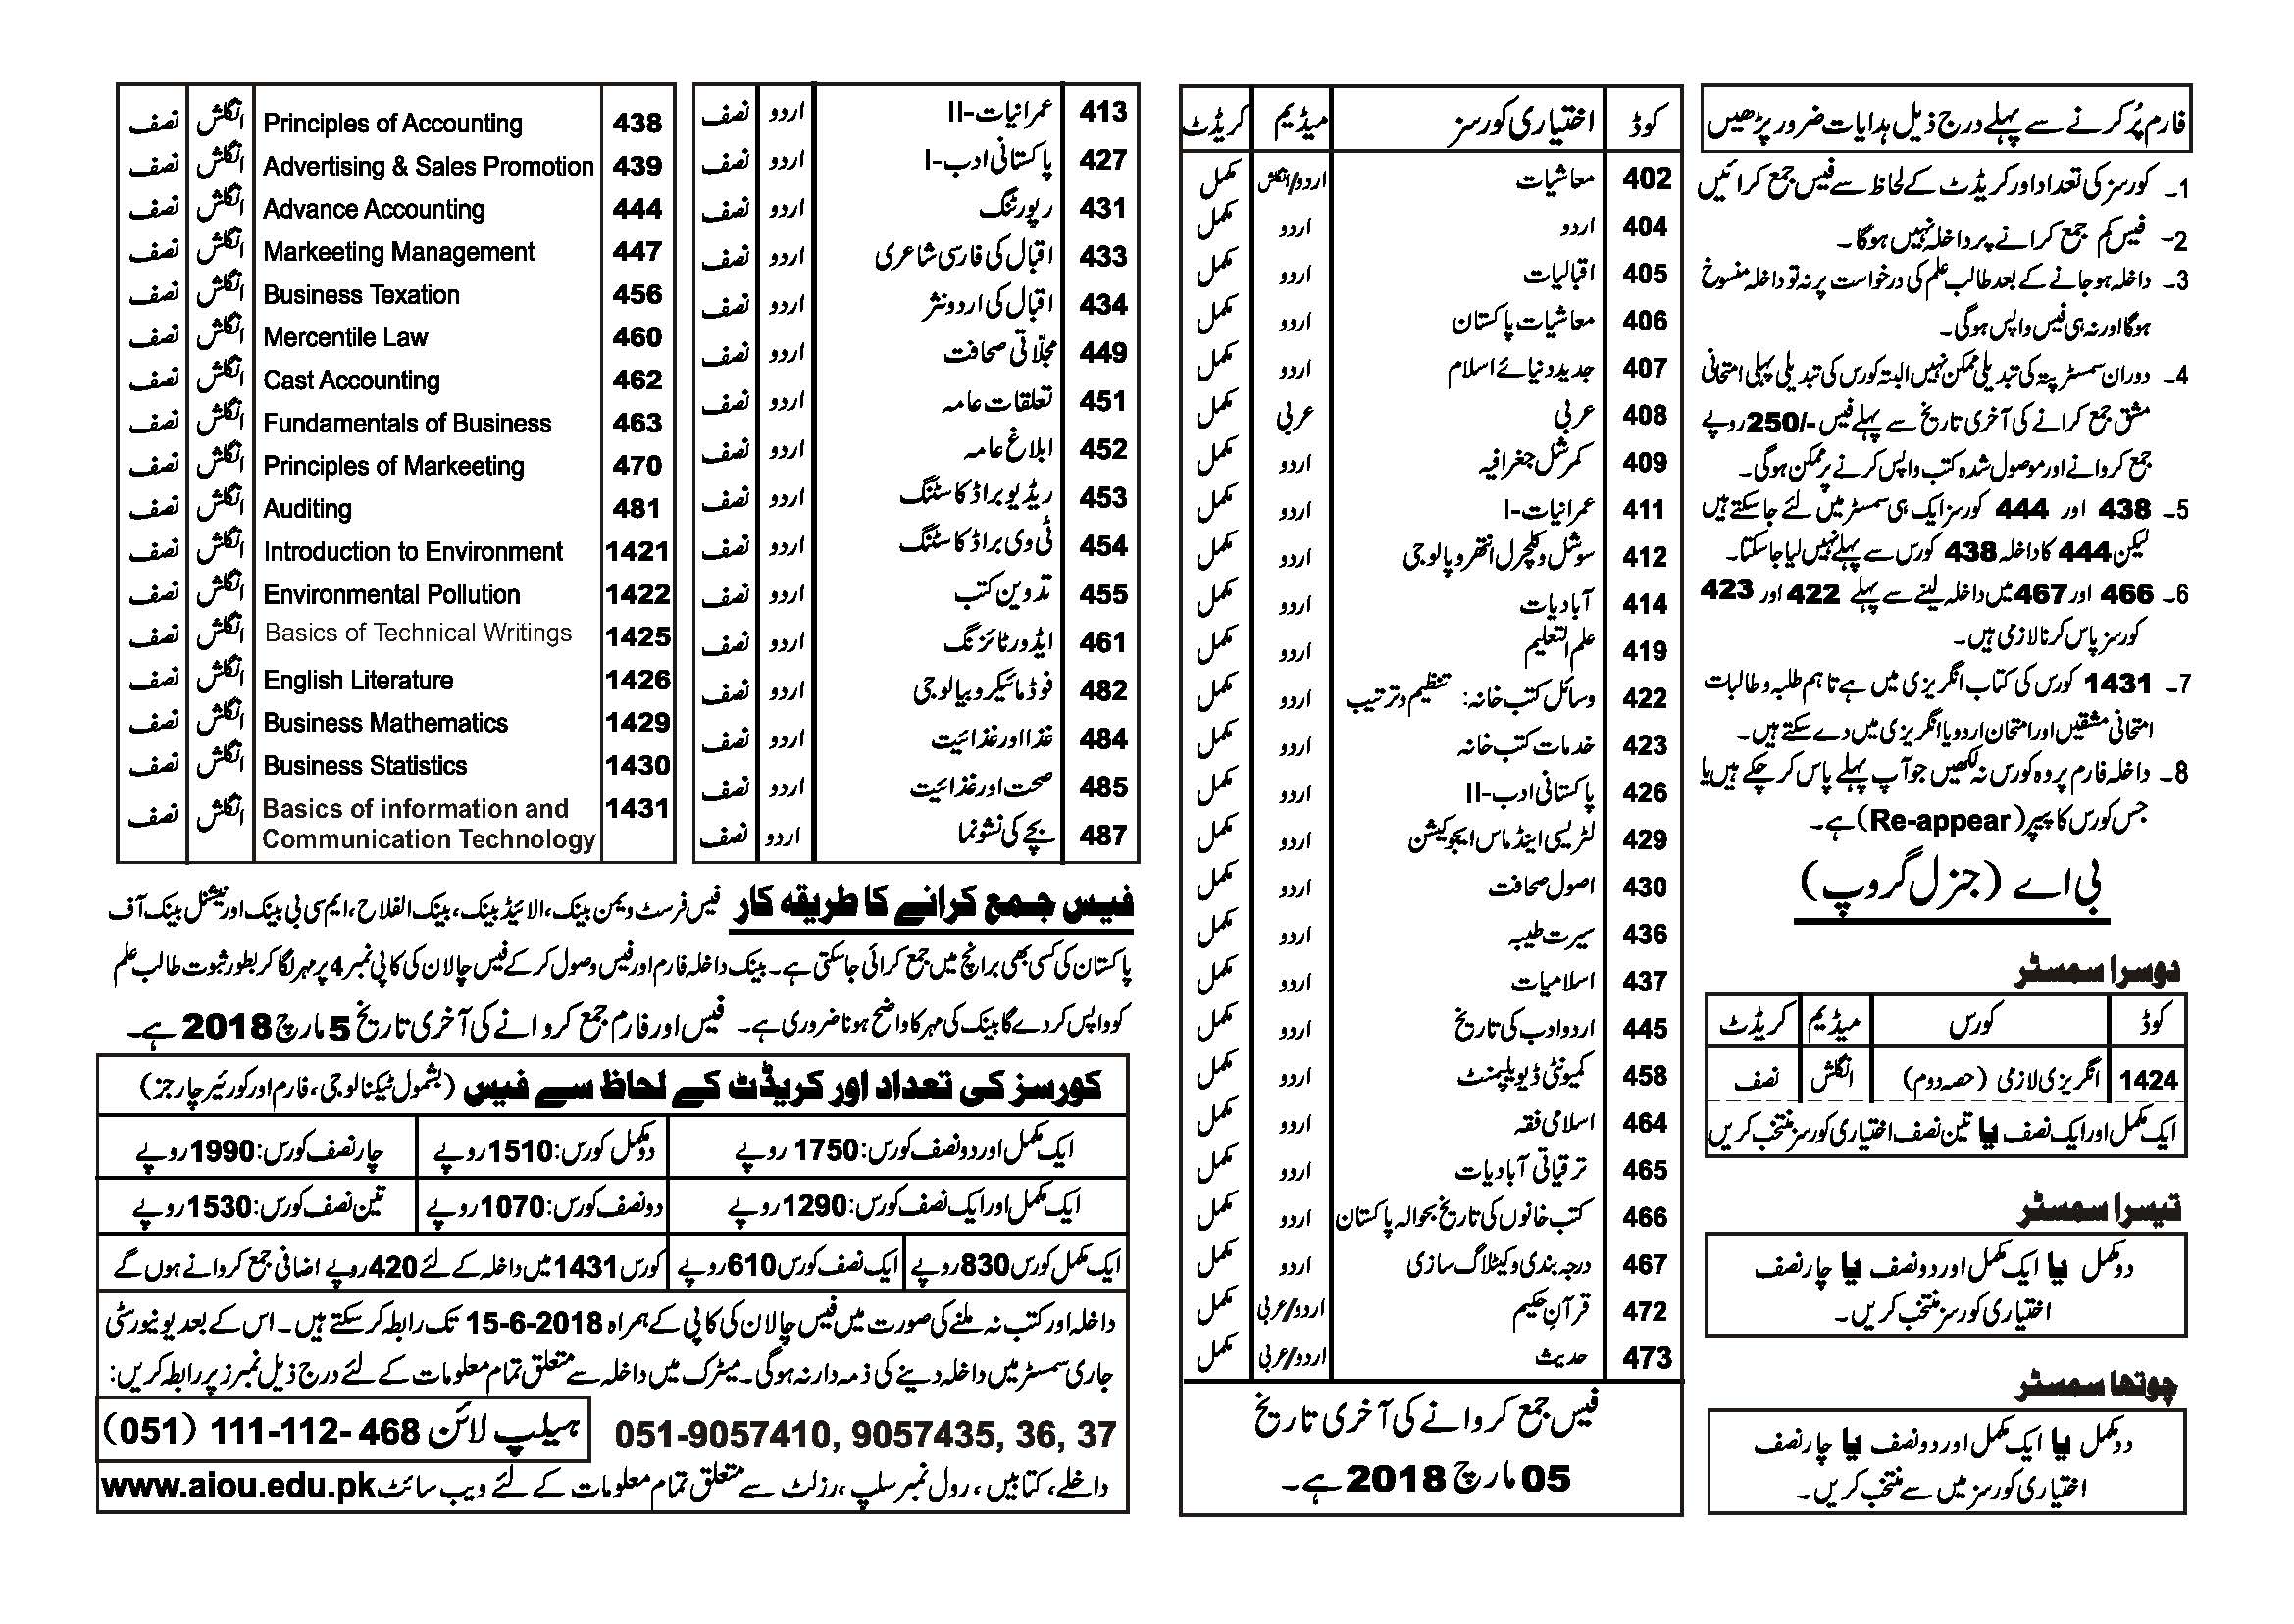 فارم پُر کرنے سے پہلے درج ذیل ہدایات ضرور پڑھیں
1۔ کورسز کی تعداد اور کریڈٹ کے لحاظ سے فیس جمع کرائیں
2۔ فیس کم جمع کرانے پر داخلہ نہیں ہوگا۔
3۔ داخلہ ہو جانے کے بعد طالب علم کی درخواست پر نہ تو داخلہ منسوخ
ہوگا اور نہ ہی فیس واپس ہوگی۔
4۔ دوران سمسٹر پتہ کی تبدیلی ممکن نہیں البتہ کورس کی تبدیلی پہلی امتحانی
مشق جمع کرانے کی آخری تاریخ سے پہلے فیس -/250 روپے
جمع کروانے اور موصول شدہ کتب واپس کرنے پر ممکن ہوگی۔
5۔ 438 اور 444 کورسز ایک ہی سمسٹر میں لئے جا سکتے ہیں
لیکن 444 کا داخلہ 438 کورس سے پہلے نہیں لیا جا سکتا۔
6۔ 466 اور 467 میں داخلہ لینے سے پہلے 422 اور 423
کورسز پاس کرنا لازمی ہیں۔
7۔ 1431 کورس کی کتاب انگریزی میں ہے تاہم طلبہ و طالبات
امتحانی مشقیں اور امتحان اردو یا انگریزی میں دے سکتے ہیں۔
8۔ داخلہ فارم پر وہ کورس نہ لکھیں جو آپ پہلے پاس کر چکے ہیں یا
جس کورس کا پیپر (Re-appear) ہے۔
بی اے (جنرل گروپ)
دوسرا سمسٹر
کوڈ کورس میڈیم کریڈٹ
1424 انگریزی لازمی (حصہ دوم) انگلش نصف
ایک مکمل اور ایک نصف یا تین نصف اختیاری کورسز منتخب کریں
تیسرا سمسٹر
دو مکمل یا ایک مکمل اور دو نصف یا چار نصف
اختیاری کورسز منتخب کریں۔
چوتھا سمسٹر
دو مکمل یا ایک مکمل اور دو نصف یا چار نصف
اختیاری کورسز میں سے منتخب کریں۔
کوڈ اختیاری کورسز میڈیم کریڈٹ
402 معاشیات اردو/انگلش مکمل
404 اردو اردو مکمل
405 اقبالیات اردو مکمل
406 معاشیات پاکستان اردو مکمل
407 جدید دنیائے اسلام اردو مکمل
408 عربی عربی مکمل
409 کمرشل جغرافیہ اردو مکمل
411 عمرانیات-I اردو مکمل
412 سوشل و کلچرل انتھروپالوجی اردو مکمل
414 آبادیات اردو مکمل
419 علم التعلیم اردو مکمل
422 وسائل کتب خانہ: تنظیم و ترتیب اردو مکمل
423 خدمات کتب خانہ اردو مکمل
426 پاکستانی ادب-II اردو مکمل
429 لٹریسی اینڈ ماس ایجوکیشن اردو مکمل
430 اصول صحافت اردو مکمل
436 سیرت طیبہ اردو مکمل
437 اسلامیات اردو مکمل
445 اردو ادب کی تاریخ اردو مکمل
458 کمیونٹی ڈیویلپمنٹ اردو مکمل
464 اسلامی فقہ اردو مکمل
465 ترقیاتی آبادیات اردو مکمل
466 کتب خانوں کی تاریخ بحوالہ پاکستان اردو مکمل
467 درجہ بندی و کیٹلاگ سازی اردو مکمل
472 قرآنِ حکیم اردو/عربی مکمل
473 حدیث اردو/عربی مکمل
فیس جمع کروانے کی آخری تاریخ
05 مارچ 2018 ہے۔
413 عمرانیات-II اردو نصف
427 پاکستانی ادب-I اردو نصف
431 رپورٹنگ اردو نصف
433 اقبال کی فارسی شاعری اردو نصف
434 اقبال کی اردو نثر اردو نصف
449 مجلّاتی صحافت اردو نصف
451 تعلقات عامہ اردو نصف
452 ابلاغ عامہ اردو نصف
453 ریڈیو براڈکاسٹنگ اردو نصف
454 ٹی وی براڈکاسٹنگ اردو نصف
455 تدوین کتب اردو نصف
461 ایڈورٹائزنگ اردو نصف
482 فوڈ مائیکروبیالوجی اردو نصف
484 غذا اور غذائیت اردو نصف
485 صحت اور غذائیت اردو نصف
487 بچے کی نشوونما اردو نصف
438 Principles of Accounting انگلش نصف
439 Advertising & Sales Promotion انگلش نصف
444 Advance Accounting انگلش نصف
447 Markeeting Management انگلش نصف
456 Business Texation انگلش نصف
460 Mercentile Law انگلش نصف
462 Cast Accounting انگلش نصف
463 Fundamentals of Business انگلش نصف
470 Principles of Markeeting انگلش نصف
481 Auditing انگلش نصف
1421 Introduction to Environment انگلش نصف
1422 Environmental Pollution انگلش نصف
1425 Basics of Technical Writings انگلش نصف
1426 English Literature انگلش نصف
1429 Business Mathematics انگلش نصف
1430 Business Statistics انگلش نصف
1431 Basics of information and انگلش نصف
Communication Technology
فیس جمع کرانے کا طریقہ کار فیس فرسٹ ویمن بینک، الائیڈ بینک، بینک الفلاح، ایم سی بی بینک اور نیشنل بینک آف
پاکستان کی کسی بھی برانچ میں جمع کرائی جا سکتی ہے۔ بینک داخلہ فارم اور فیس وصول کر کے فیس چالان کی کاپی نمبر 4 پر مہر لگا کر بطور ثبوت طالب علم
کو واپس کر دے گا بینک کی مہر کا واضح ہونا ضروری ہے۔ فیس اور فارم جمع کروانے کی آخری تاریخ 5 مارچ 2018 ہے۔
کورسز کی تعداد اور کریڈٹ کے لحاظ سے فیس (بشمول ٹیکنالوجی، فارم اور کورئیر چارجز)
ایک مکمل اور دو نصف کورس: 1750 روپے دو مکمل کورس: 1510 روپے چار نصف کورس: 1990 روپے
ایک مکمل اور ایک نصف کورس: 1290 روپے دو نصف کورس: 1070 روپے تین نصف کورس: 1530 روپے
ایک مکمل کورس 830 روپے ایک نصف کورس 610 روپے کورس 1431 میں داخلہ کے لئے 420 روپے اضافی جمع کروانے ہوں گے
داخلہ اور کتب نہ ملنے کی صورت میں فیس چالان کی کاپی کے ہمراہ 15-6-2018 تک رابطہ کر سکتے ہیں۔ اس کے بعد یونیورسٹی
جاری سمسٹر میں داخلہ دینے کی ذمہ دار نہ ہوگی۔ میٹرک میں داخلہ سے متعلق تمام معلومات کے لئے درج ذیل نمبرز پر رابطہ کریں:
051-9057410, 9057435, 36, 37 ہیلپ لائن (051) 111-112-468
داخلے، کتابیں، رول نمبر سلپ، رزلٹ سے متعلق تمام معلومات کے لئے ویب سائٹ www.aiou.edu.pk